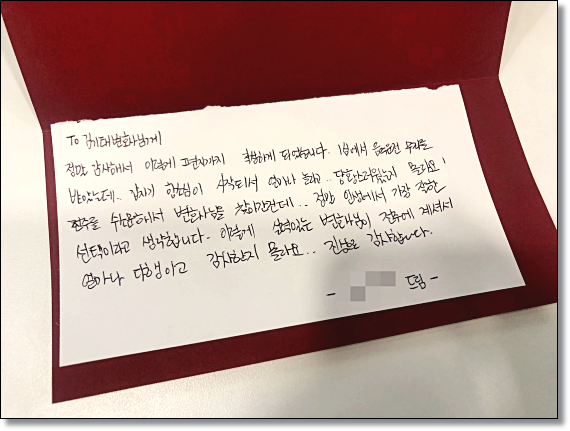 To 김기태변호사님께
정말 감사해서 이렇게 손편지까지 작성하게 되었습니다. 1심에서 음주운전 무죄를
받았는데.. 갑자기 항소심이 시작되서 얼마나 놀라고.. 당황스러웠는지 몰라요!
전주를 수소문해서 변호사님을 찾아갔던건데.. 정말 인생에서 가장 잘한
선택이라고 생각합니다. 이렇게 실력있는 변호사님이 전주에 계셔서
얼마나 다행이고 감사한지 몰라요.. 진심으로 감사합니다.
- 드림 -